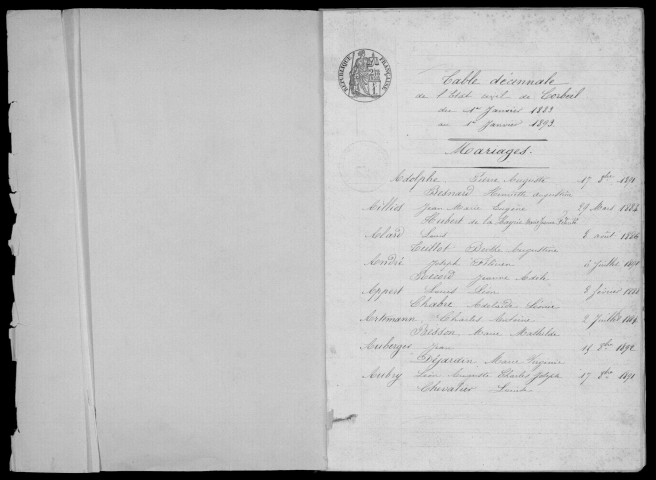 RÉPUBLIQUE FRANÇAISE
Table décennale
de l'Etat civil de Corbeil
du 1er Janvier 1883
au 1er Janvier 1893.
Mariages.
Adolphe Pierre Auguste 17 8bre 1891
Besnard Henriette Augustine
Jean Marie Eugène 29 Mars 1883
Hubert de la
Abard Louis 8 août 1886
Tuillot Berthe Augustine
André Joseph 5 Juillet 1890
Jeanne Adèle
Appert Louis Léon 8 février
Chabre Adelaïde Léonie
Artzmann Charles Antoine 2 Juillet
Besson Marie Mathilde
Auberger Jean 15 8bre 1892
Dejardin Marie Virginie
Aubry Léon Auguste Charles Joseph 17 8bre 1891
Chevalier